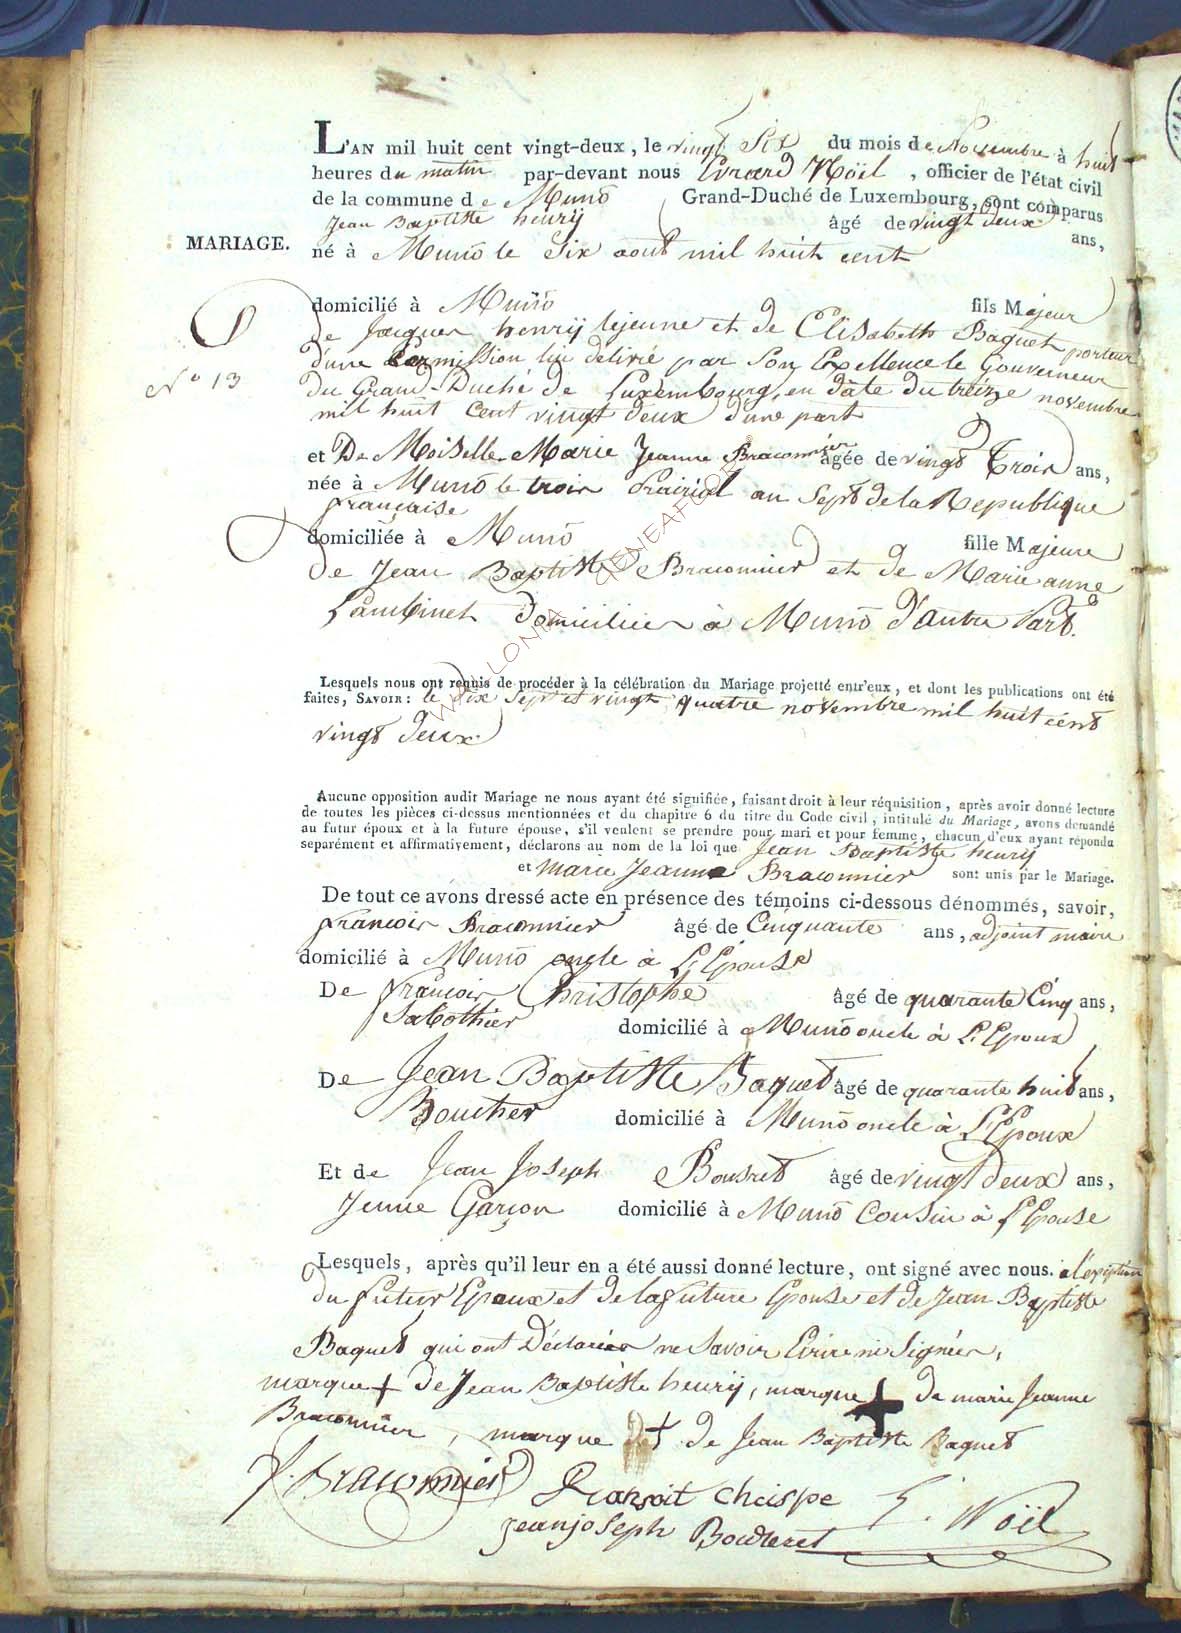 L'AN mil huit cent vingt-deux, le vingt Six du mois de Novembre à huit
heures du matin par-devant nous Evrard Noël, officier de l'état civil
de la commune de Muno Grand-Duché de Luxembourg, sont comparus
Jean Baptiste henrÿ âgé de vingt deux ans,
MARIAGE.
né à Muno le Six aout mil huit cent
domicilié à Muno fils Majeur
N° 13
de Jacques henrÿ lejeune et de Elisabeth Baquet porteur
d'une permission lui delivré par Son Exellence le Gouverneur
du Grand-Duché de Luxembourg, en date du treize novembre
mil huit cent vingt deux d'une part
et De Moiselle Marie Jeanne Braconnier âgée de vingt Trois ans,
née à Muno le trois Prairial an Sept de la Republique
française
domiciliée à Muno fille Majeure
de Jean Baptiste Braconnier et de Marie anne
Lambinet domiciliés à Muno d'autre Part.
Lesquels nous ont requis de procéder à la célébration du Mariage projetté entr'eux, et dont les publications ont été
faites, SAVOIR: le dix Sept et vingt quatre novembre mil huit cent
vingt deux
Aucune opposition audit Mariage ne nous ayant été signifiée, faisant droit à leur réquisition, après avoir donné lecture
de toutes les pièces ci-dessus mentionnées et du chapitre 6 du titre du Code civil, intitulé du Mariage, avons demandé
au futur époux et à la future épouse, s'il veulent se prendre pour mari et pour femme, chacun d'eux ayant répondu
séparément et affirmativement, déclarons au nom de la loi que Jean Baptiste henrÿ
et marie Jeanne Braconnier sont unis par le Mariage.
De tout ce avons dressé acte en présence des témoins ci-dessous dénommés, savoir,
francois Braconnier âgé de Cinquante ans, adjoint maire
domicilié à Muno oncle à L'Epouse
De francois Christophe âgé de quarante Cinq ans,
Sabothier domicilié à Muno oncle à L'Epoux
De Jean Baptiste Baquet âgé de quarante huit ans,
Boucher domicilié à Muno oncle à L'Epoux
Et de Jean Joseph âgé de vingt deux ans,
Jeune Garçon domicilié à Muno Cousin à L'Epouse
Lesquels, après qu'il leur en a été aussi donné lecture, ont signé avec nous. a l'exeption
du futur Epoux et de la future Epouse et de Jean Baptiste
Baquet qui ont Déclarés ne Savoir Ecrire ni Signér,
marque + de Jean Baptiste henrÿ, marque + de marie Jeanne
Braconnier, marque + de Jean Baptiste Baquet
f. Braconnier E. Noël
jeanjoseph
WALLONIA GENEAFORUM